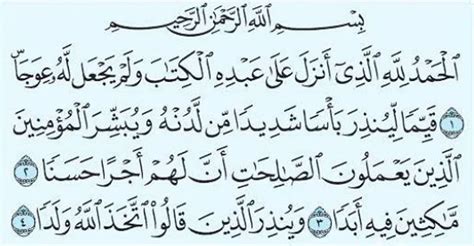 بِسْمِ اللَّهِ الرَّحْمَٰنِ الرَّحِيمِ
الْحَمْدُ لِلَّهِ الَّذِي أَنزَلَ عَلَىٰ عَبْدِهِ الْكِتَابَ وَلَمْ يَجْعَل لَّهُ عِوَجًا
١ قَيِّمًا لِّيُنذِرَ بَأْسًا شَدِيدًا مِّن لَّدُنْهُ وَيُبَشِّرَ الْمُؤْمِنِينَ
الَّذِينَ يَعْمَلُونَ الصَّالِحَاتِ أَنَّ لَهُمْ أَجْرًا حَسَنًا ٢
مَّاكِثِينَ فِيهِ أَبَدًا ٣ وَيُنذِرَ الَّذِينَ قَالُوا اتَّخَذَ اللَّهُ وَلَدًا ٤